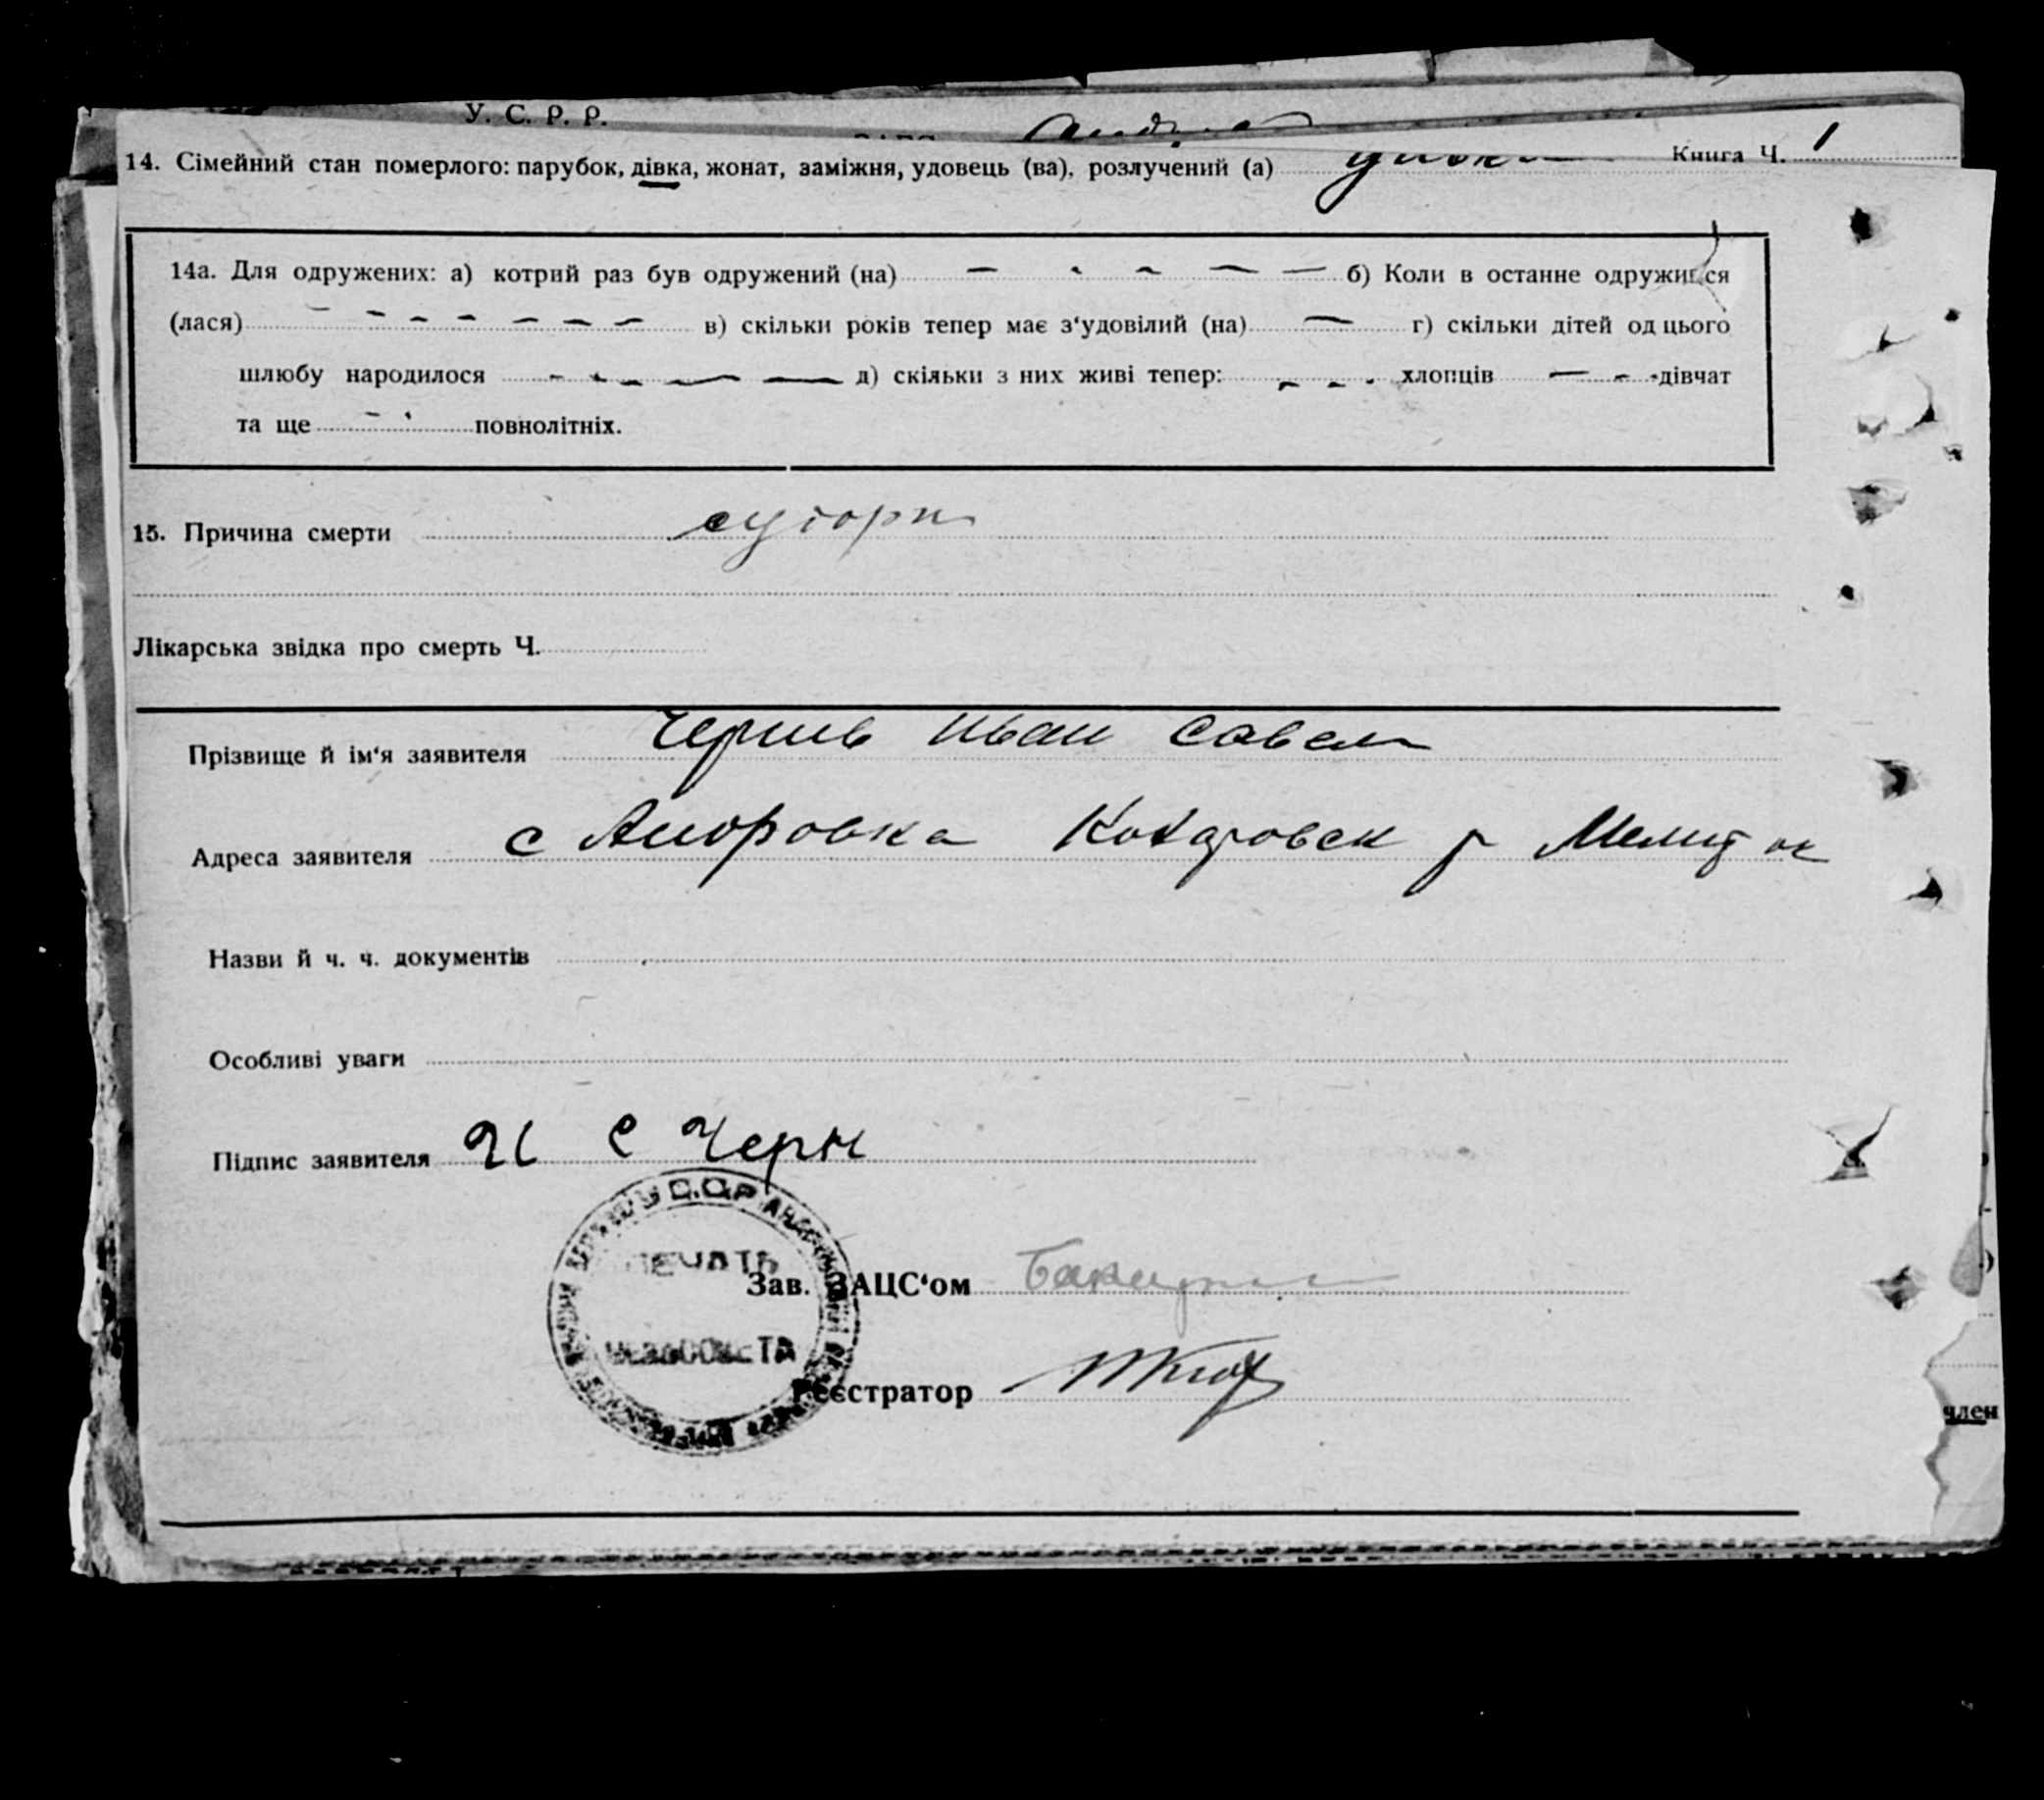 У. С. Р. Р.
Книга Ч. 1
14. Сімейний стан померлого: парубок, дівка, жонат, заміжня, удовець (ва), розлучений (а) дивка
14а. Для одружених: а) котрий раз був одружений (на) — - - — — б) Коли в останне одружився
(лася) - - - - - - - в) скільки років тепер має з‘удовілий (на) — г) скільки дітей од цього
шлюбу народилося - - - — — д) скільки з них живі тепер: - - - хлопців — - - дівчат
та ще - - повнолітніх.
15. Причина смерти
Лікарська звідка про смерть Ч.
Прізвище й ім‘я заявителя Иван Савел
Адреса заявителя с р
Назви й ч. ч. документів
Особливі уваги
Підпис заявителя И С Черн
У.С.С.Р
ПЕЧАТЬ
Зав. ЗАЦС‘ом
Реєстратор
член